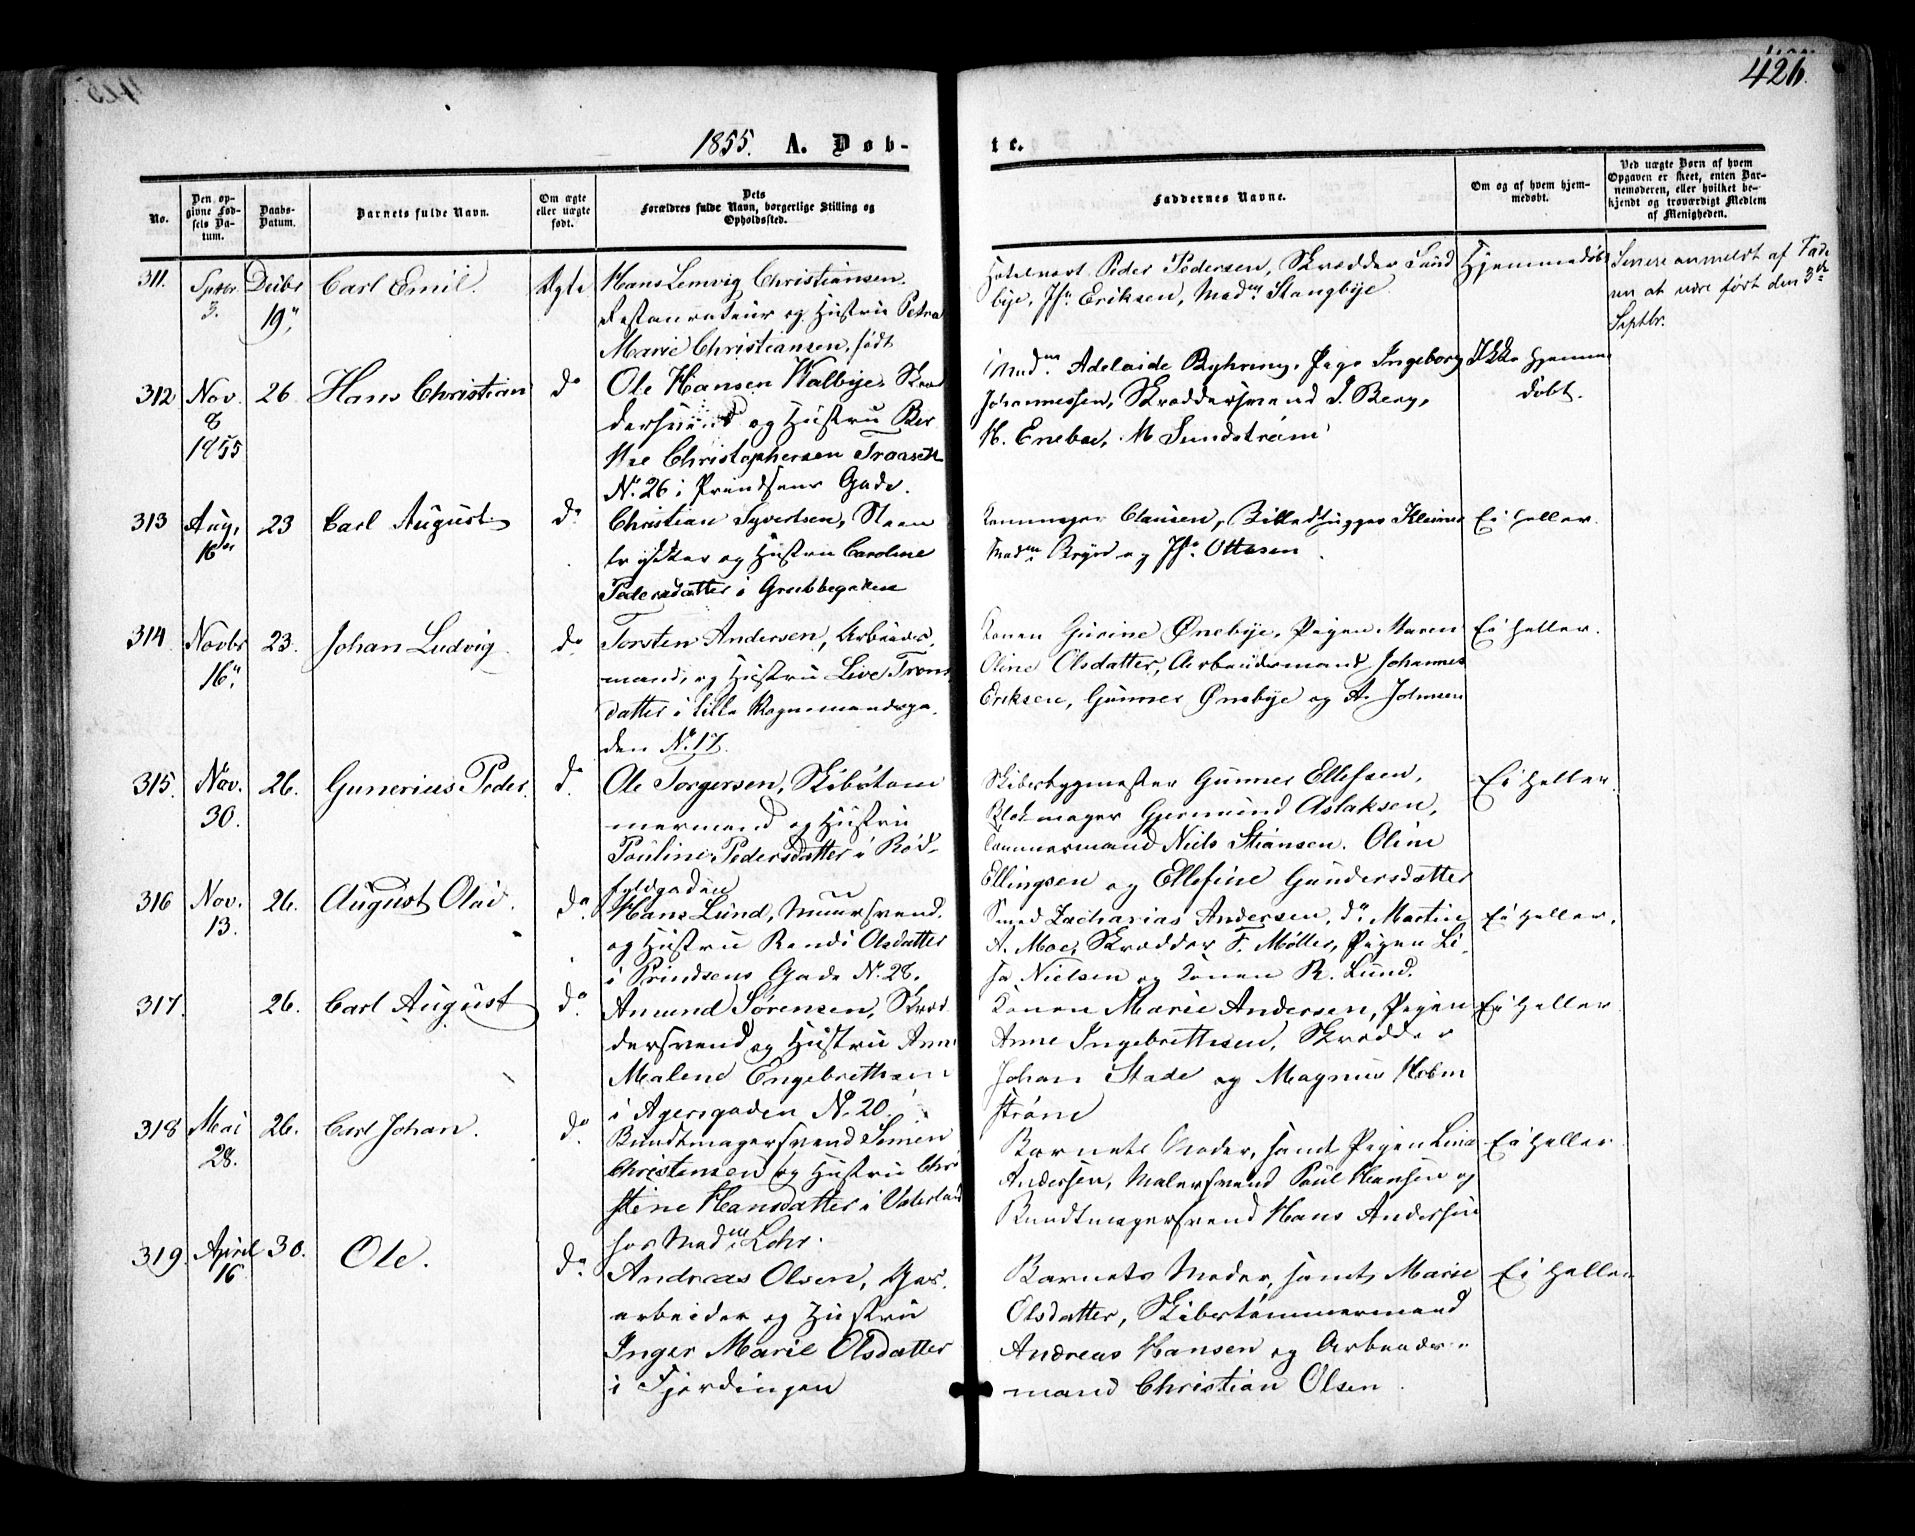 426.
1855. A. Døb-
te.
No.
Den op-
givne Fød-
sels Da-
tum.
Daabs-
Datum.
Barnets fulde Navn.
Om ægte
eller uægte
født.
Dets
Forældres fulde Navn, borgerlige Stilling og
Opholdssted.
Faddernes Navne.
Om og af hvem hjem-
medøbt.
Ved uægte Børn af hvem
Opgaven er skeet, enten Bar-
nemoderen, eller hvilket be-
kjendt og troværdigt Medlem
af Menigheden.
311.
Septbr
3.
Decbr
19"
Carl Emil.
Ægte
Hans Lemvig Christiansen.
Restaurateur og Hustru Petra
Marie Christiansen, født
Hotelvært Peder Pedersen, Skrædder Sund
bye, Jfr Eriksen, Madm Stangbye
Hjemmedøbt
Senere anmeldt af Fade
ren at være født den 3de
Septbr.
312
Nov.
8
1855
26
Hans Christian
do
Ole Hansen Kalbye, Skræ
dersvend og Hustru Ber
the Christophersen Traasett
No. 26 i Prindsens Gade.
Madm Adelaide Byhring, Pige Ingeborg
Johannessen, Skræddersvend J. Berg,
H. Enebae, M Sundstrøm
Ikke hjemme
døbt.
313
Aug.
16de
23
Carl August
do
Christian Syvertsen, Steen
trykker og Hustru Caroline
Pedersdatter i Grubbegaden
Clausen, Billedhugger Klein
Madm Bryn og Jfr Ottesen
Ei heller.
314
Novbr
16"
23.
Johan Ludvig
do
Torsten Andersen, Arbeids
mand, og Hustru Live Trons
datter i lille Vognmandsga
den No. 17.
Konen Gurine Ønebye, Pigen Maren
Oline Olsdatter, Arbeidsmand Johannes
Eriksen, Gunner Ønebye og A. Johnsen
Ei heller.
315
Nov.
30.
26.
Gunerius Peder.
do
Ole Torgersen, Skibstøm
mermand og Hustru
Pauline Pedersdatter i Rød-
fyldgaden
Skibsbygmester Gunner Ellefsen,
Blokmager Gjermund Aslaksen,
Tømmermand Niels Stiansen. Oline
Ellingsen og Ellefine Gundersdatter
Ei heller.
316
Nov.
13.
26.
August Olai.
do
Hans Lund, Muursvend,
og Hustru Randi Olsdatter
i Prindsens Gade No. 28.
Smed Zacharias Andersen, do Martin
A. Moe, Skrædder F. Møller, Pigen Li-
sa Nielsen og Konen R. Lund.
Ei heller.
317.
26.
Carl August
do
Amund Sørensen, Skræd
dersvend og Hustru Anne
Malene Engebrethsen
i Agersgaden No. 20.
Konen Marie Andersen, Pigen
Anne Ingebrettsen, Skrædder
Johan Stade og Magnus Holm
strøm
Ei heller
318
Mai
28.
26.
Carl Johan.
do
Bundtmagersvend Simen
Christensen og Hustru Chri
stine Hansdatter i Vaterland
hos Madm Lohr.
Barnets Moder, samt Pigen Lina
Andersen, Malersvend Paul Hansen og
Bundtmagersvend Hans Andersen
Ei heller
319.
April
16
30.
Ole.
do
Andreas Olsen, Gas-
arbeider og Hustru
Inger Marie Olsdatter
i Fjerdingen
Barnets Moder, samt Marie
Olsdatter, Skibstømmermand
Andreas Hansen og Arbeids-
mand Christian Olsen.
Ei heller